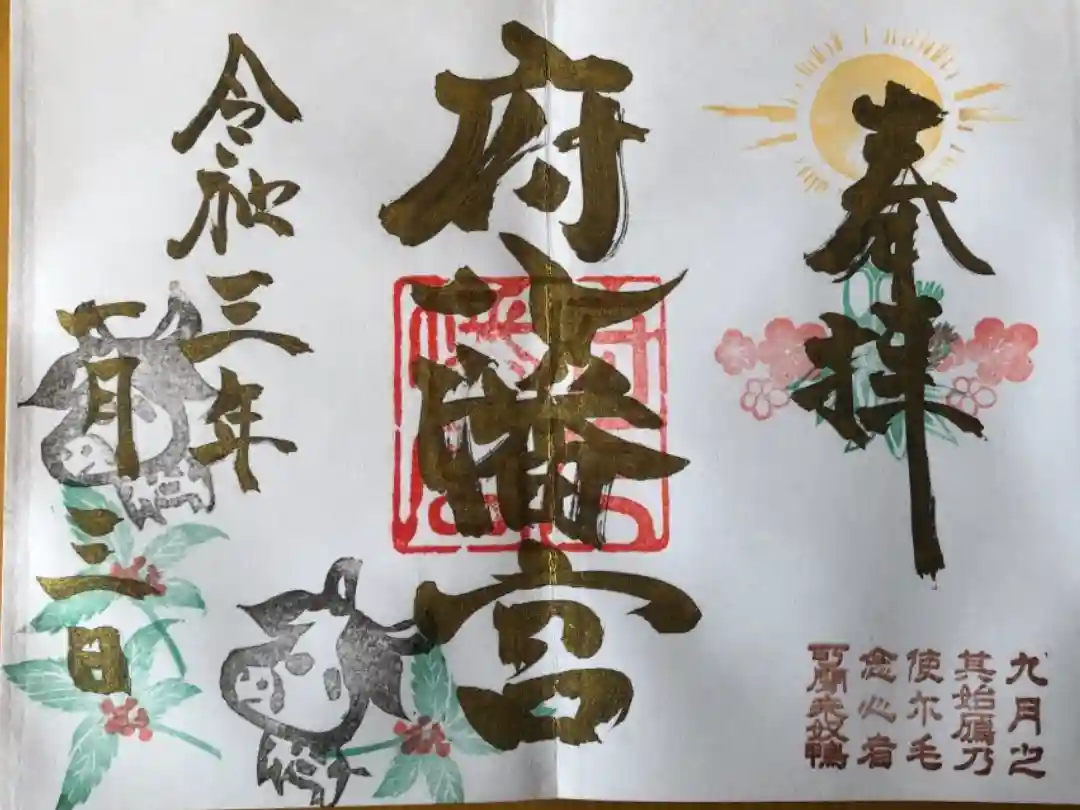 奉拝
九月之
其始鴈乃
使尓毛
念心者
可聞来奴鴨
府八幡宮
令和三年
一月三日